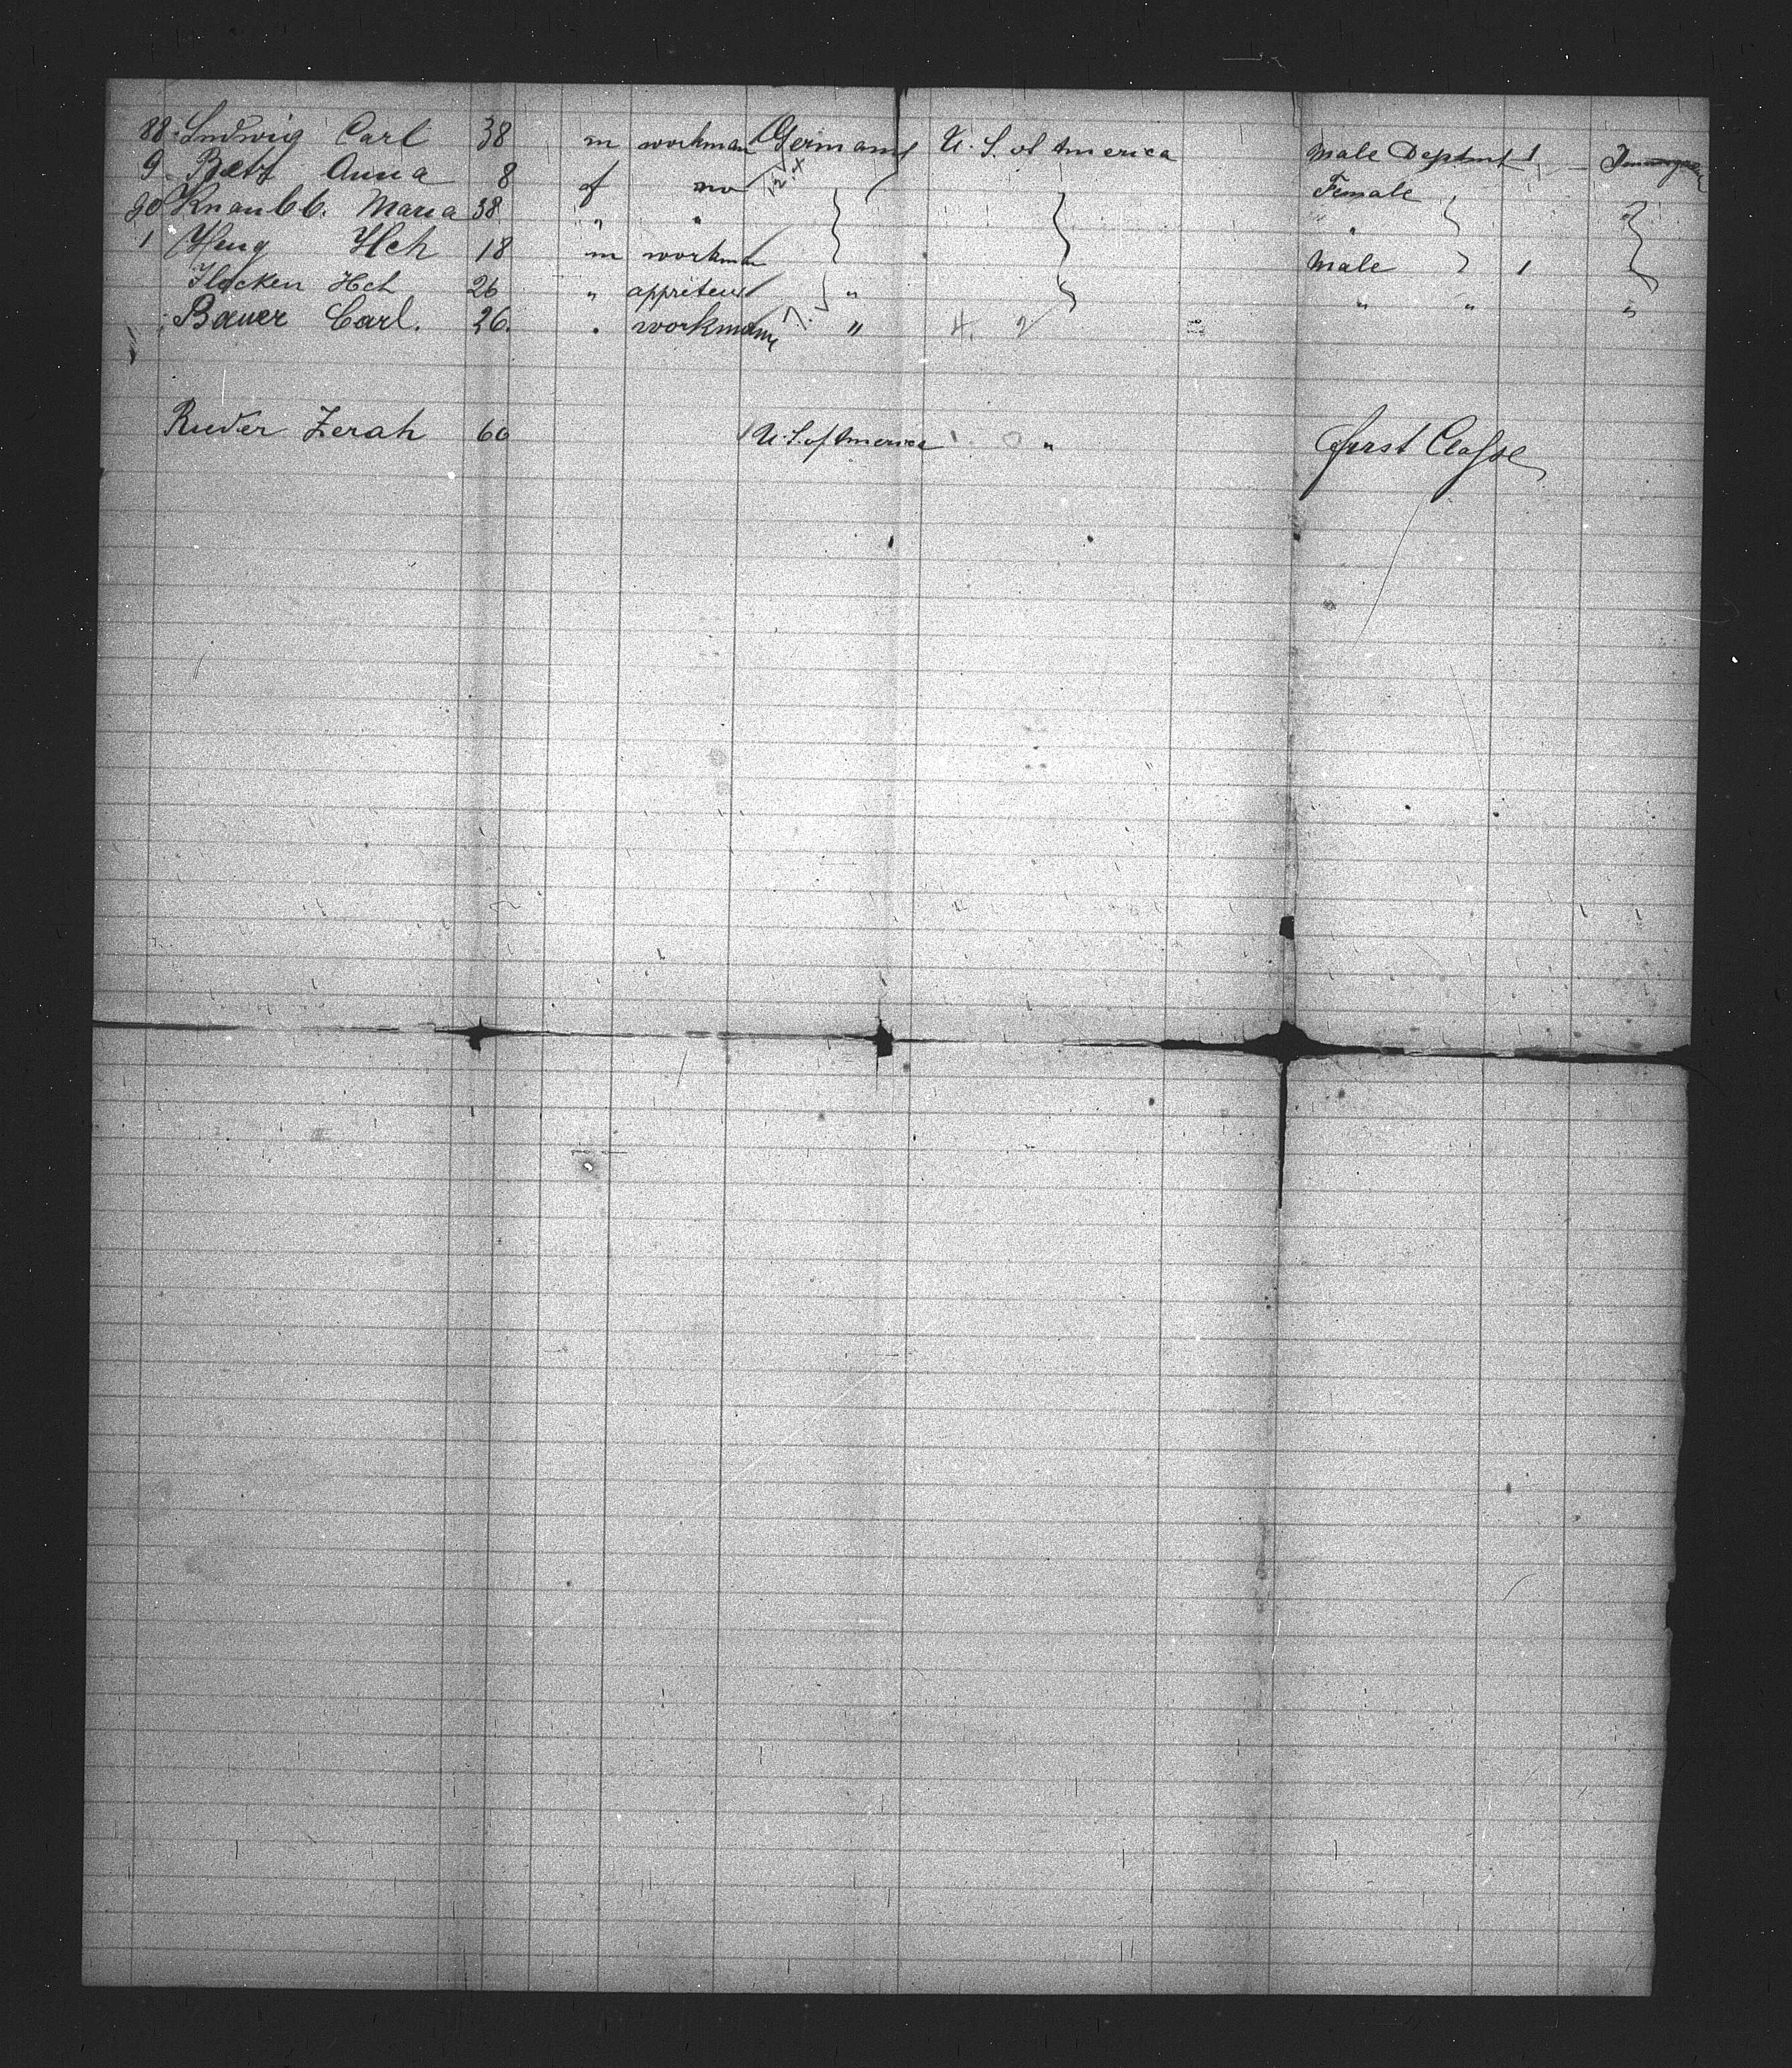 88. Ludwig Carl 38 m workman Germany U. S. of America Male Deptmt 1 —
9. Betz Anna 8 f no Female
90 Knaubb. Maria 38 " " "
1 Heng Hch 18 m workman Male 1
Flocken Hch 26 " " " " "
Bauer Carl. 26. " workmann "
Ruder Zerah 60 U. S. of America " First Classe